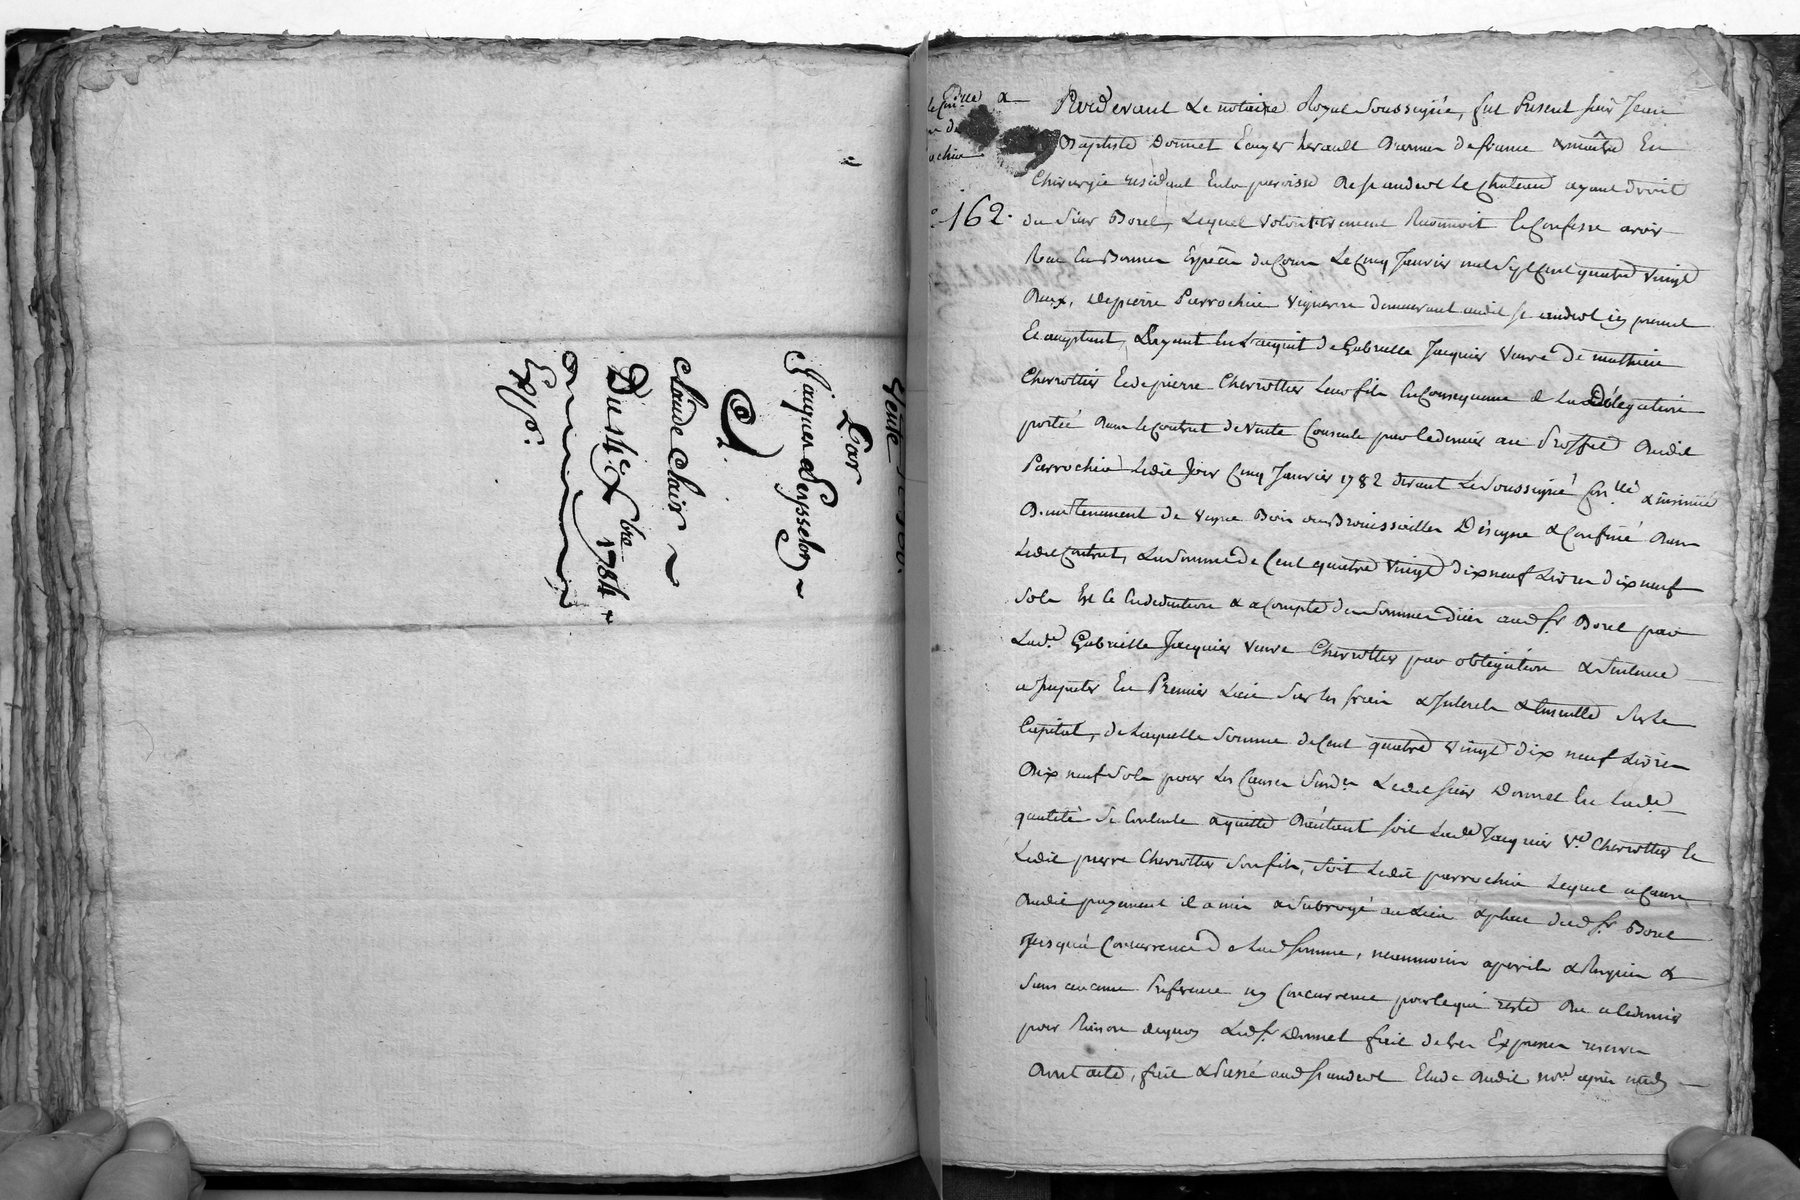 Vente
Par
Jaques Peysselon
à
Claude Clair
Du 14e Xbre 1784
Exp.
162.
Pardevant Le notaire Royal Soussigné, fut Present sieur Jean
Baptiste Donnet Ecuyer herault d'armes de france & maitre En
Chirurgie residant En la paroisse de st andeol Le Chateau ayant droit
du Sieur Borel, Lequel volontairement Reconnoit & Confesse avoir
Recu En Bonnes Espèces du Cours Le Cinq Janvier mil Sept Cent quatre vingt
deux, de pierre Parrochia vigneron demeurant audit st andeol icy present
Et acceptant, Payant En L'acquit de Gabrielle Jacquier veuve de mathieu
Cherrottier Et de pierre Cherrottier Leur fils En Consequence de La Délégation
portée dans Le Contrat de vente Consentie par Le dernier au Proffit dudit
Parrochia Ledit Jour Cinq Janvier 1782 devant Le Soussigné Conllé & insinué
d'un Tenement de vigne Bois ou Broussailles Désigné & Confiné dans
Ledit Contrat, La Somme de Cent quatre vingt dix neuf Livres dix neuf
Sols Et Ce En deduction & a Compte des Sommes dües aud. sr. Borel par
Lad.e Gabrielle Jacquier veuve Cherrottier par obligation & Sentence
a Imputer En Premier Lieu Sur les frais & Interets & Ensuitte Sur le
Capital, de Laquelle Somme de Cent quatre vingt dix neuf Livres
dix neuf Sols pour Les Causes Susd.es Ledit sieur Donnet En lad.e
qualité Se Contente & quitte d'autant soit Lad.e Jacquier v.e Cherrottier &
Ledit pierre Cherrottier Son fils, Soit Ledit parrochia Lequel a Cause
dudit payement il a mis & Subrogé au Lieu & place dud. sr. Borel
jusqu'a Concurrence de lad. somme, neanmoins a perils & Risques &
Sans aucune Preference ny Concurrence pour Ce qui reste du a Ce dernier
pour Raison de quoy Led. sr. Donnet fait de tres Expresses reserves
dont acte, fait & Passé aud. st andeol Etude dudit nore. après midy